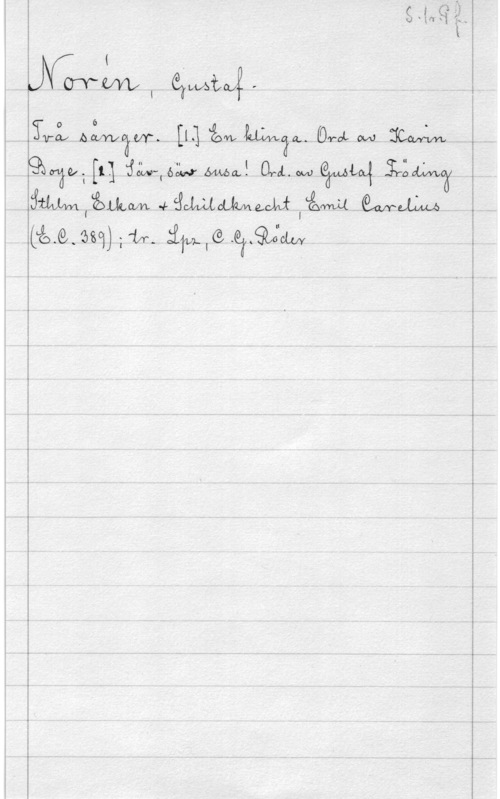 S. 1 r. Pf.
Norén, Gustaf.
Två sånger. [1.] En klinga. Ord av Karin
Boye; [2.] Säv, säv susa! Ord. av Gustaf Fröding
Sthlm, Elkan & Schildknecht, Emil Carelius
(E.C. 389); tr. Lpz, C.G. Röder